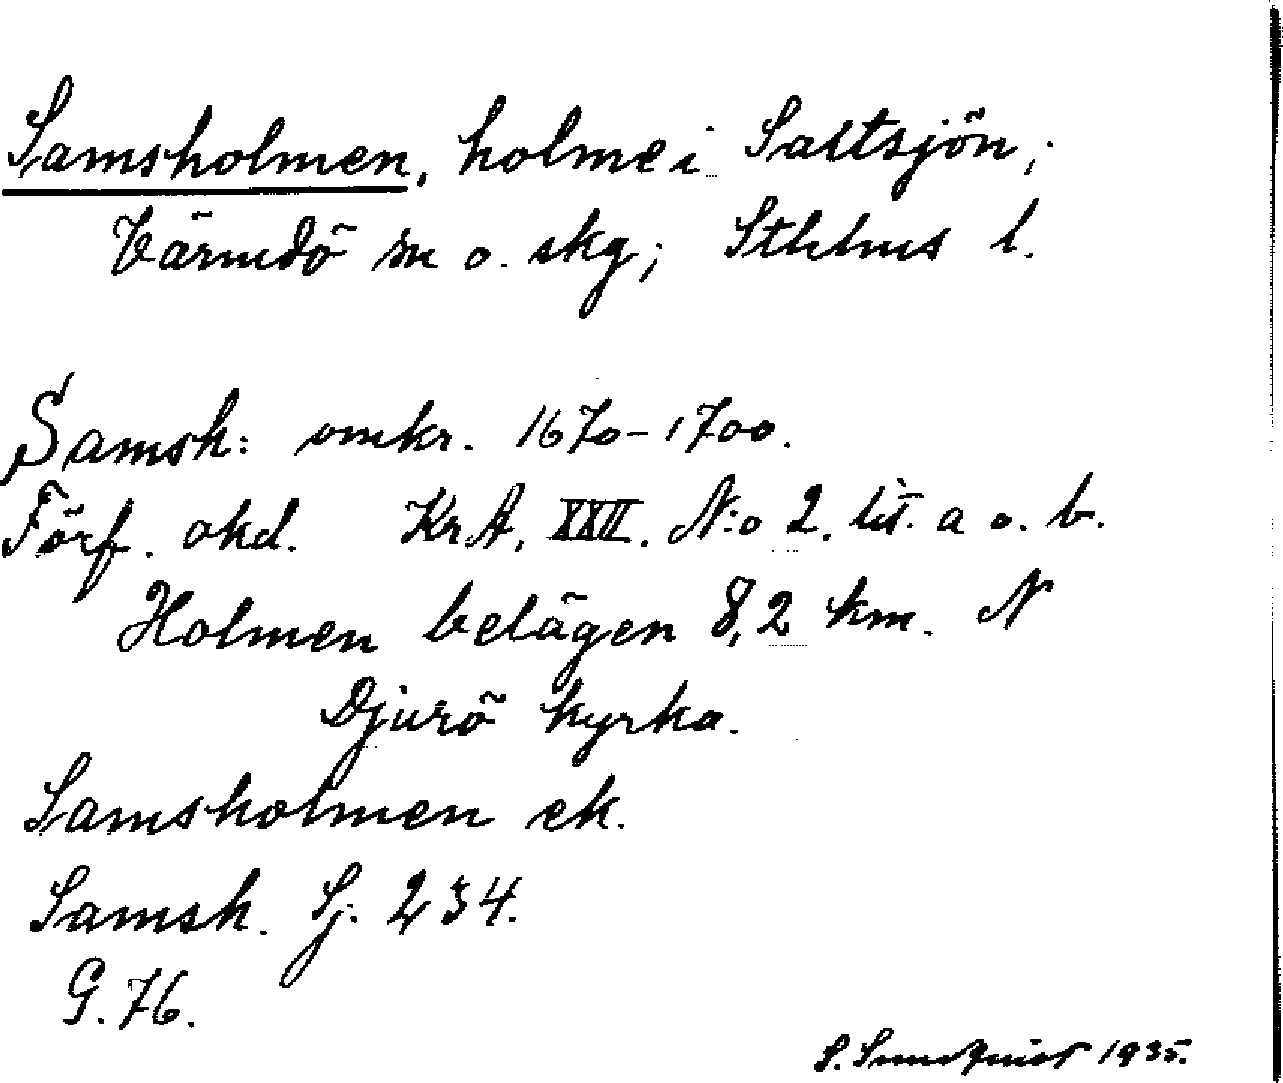 Samsholmen, holme i Saltsjön;
Värmdö sn o. skg; Sthlms l.
Samsh: omkr. 1670-1700.
Förf. okd. KrA, XXII. N:o 2. lit. a o. b.
Holmen belägen 8,2 km. N
Djurö kyrka.
Samsholmen ek.
Samsh. Sj. 234.
G. 76.
S. Sundquist 1935.